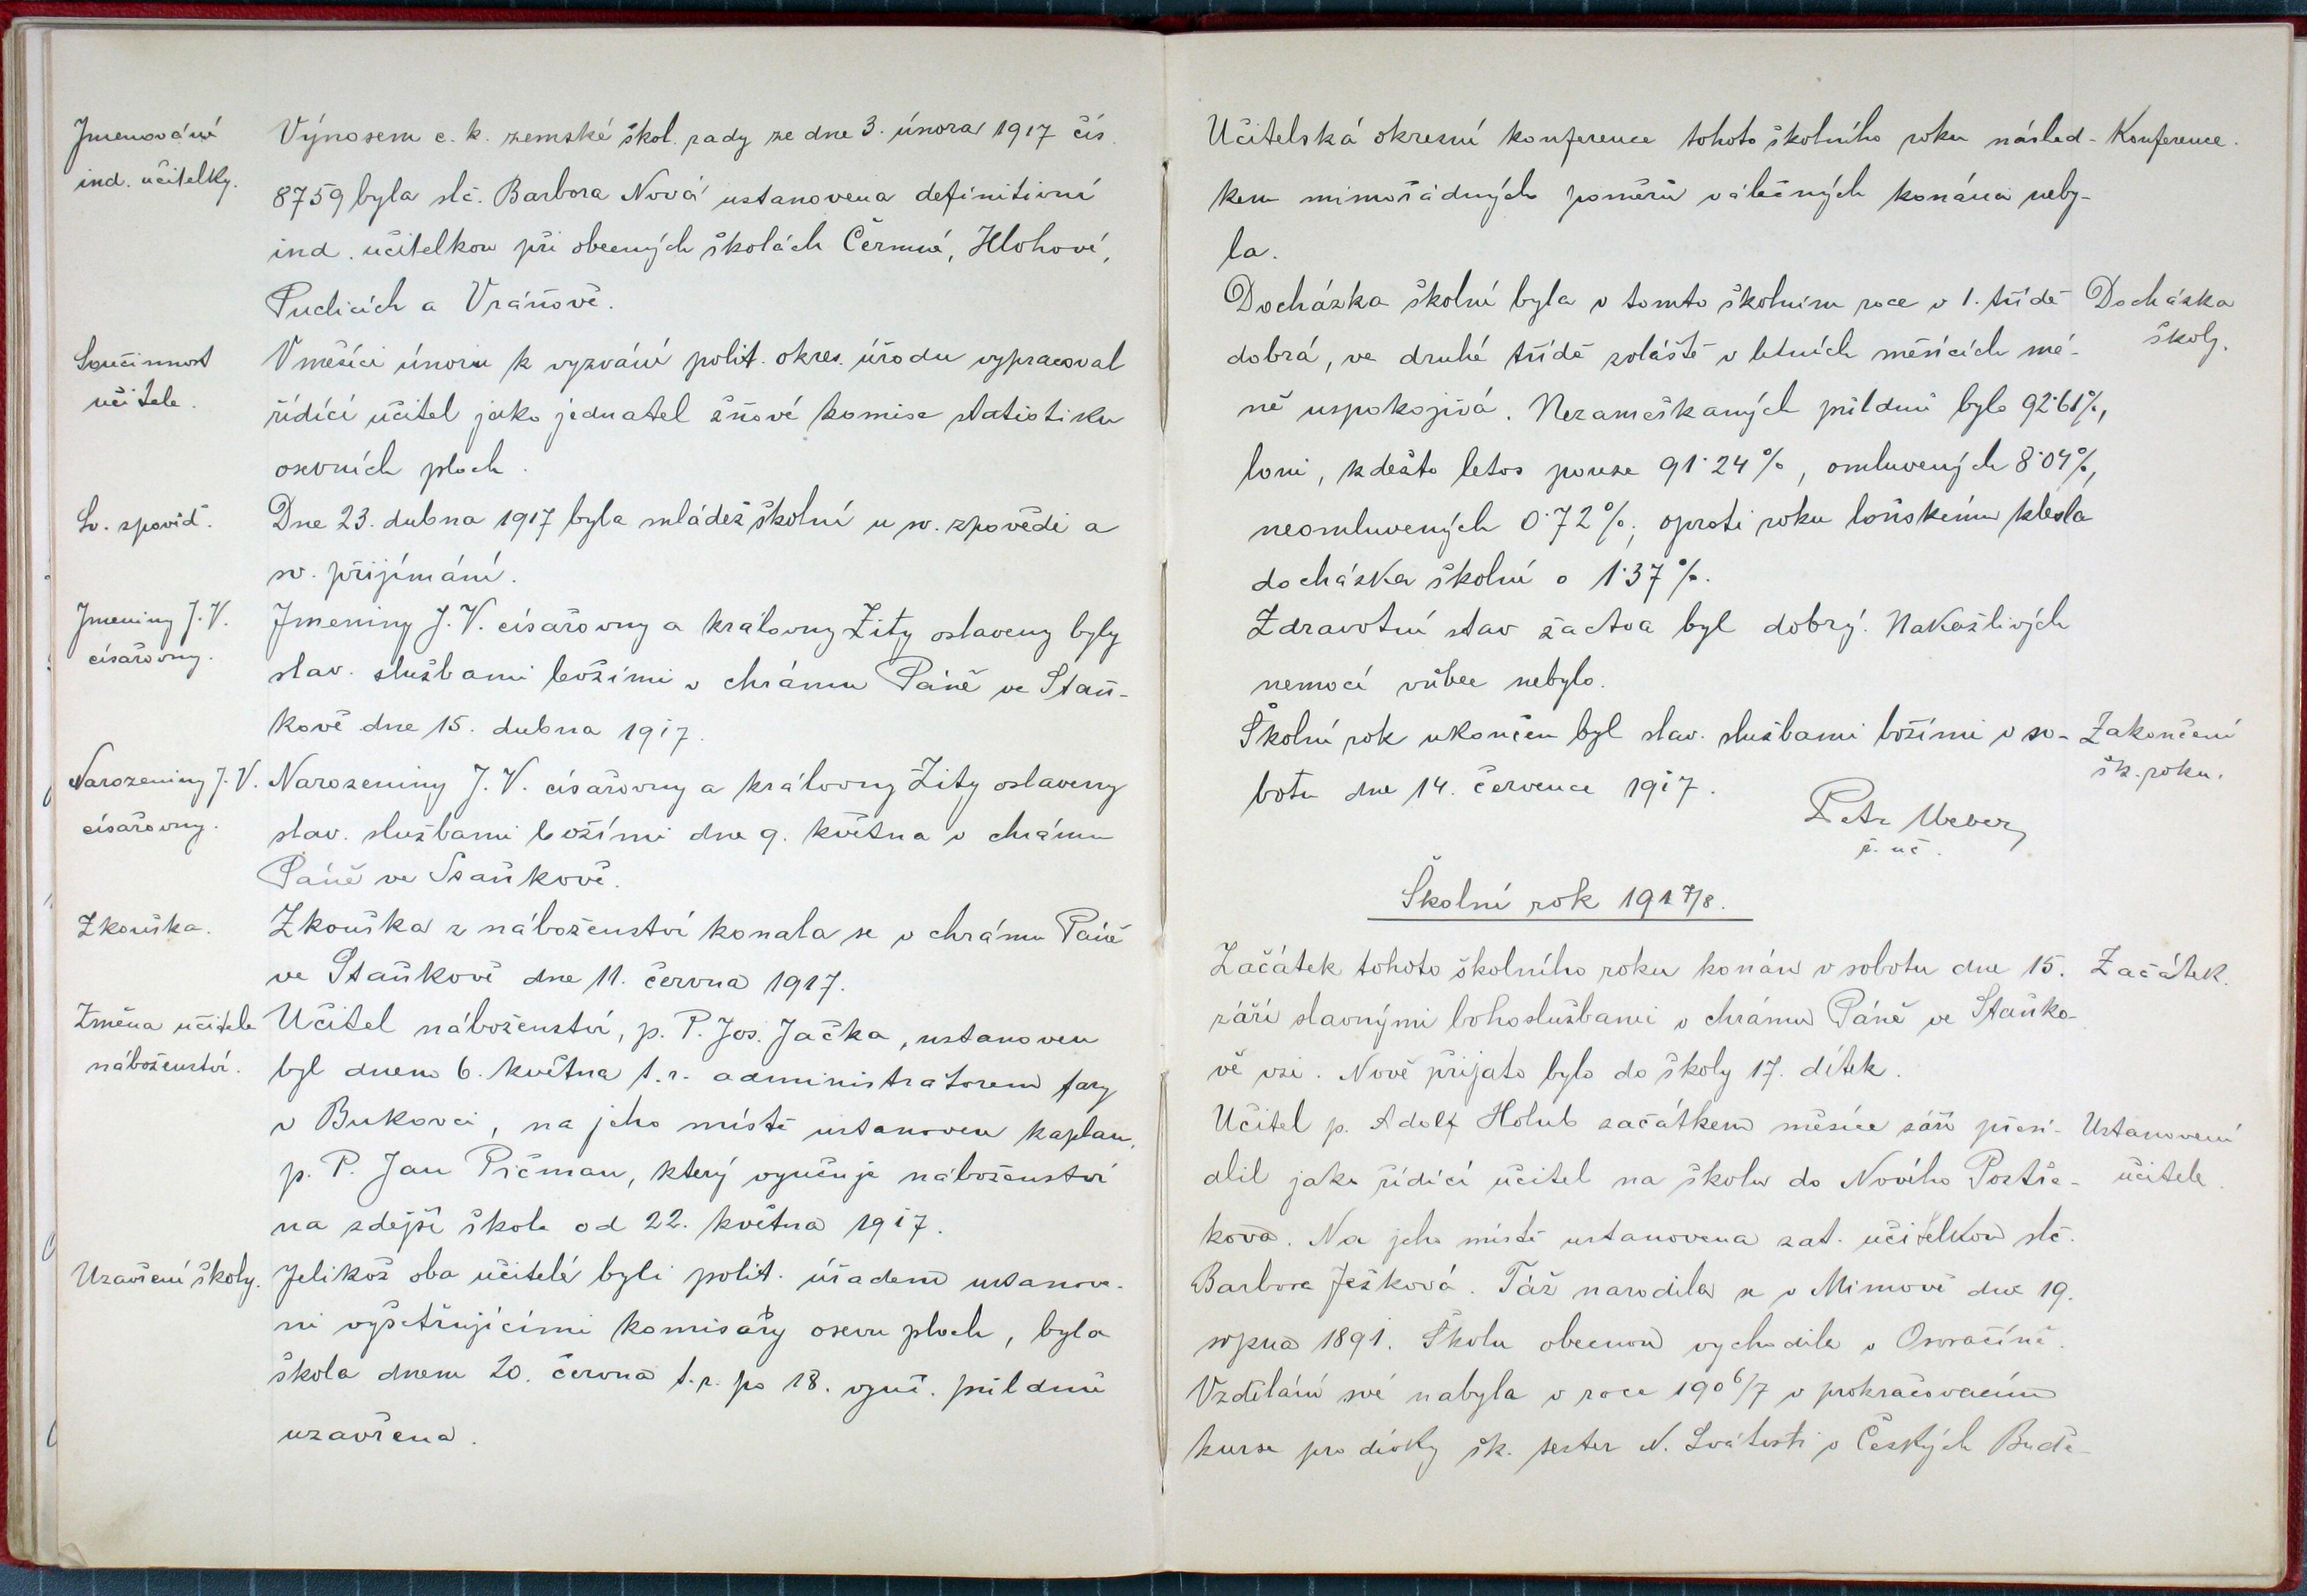 Jmenování
ind. učitelky.
Výnosem c. k. zemské škol. rady ze dne 3. února 1917 čís.
8759 byla slč. Barbora Nová ustanovena definitivní
ind. učitelkou při obecných školách Čermné, Hlohové,
Puclicích a Vránově.
Součinnost
učitele.
V měsíci únoru k vyzvání polit. okres. úřadu vypracoval
řídící učitel jako jednatel žňové komise statistiku
osevních ploch.
Sv. zpověď.
Dne 23. dubna 1917 byla mládež školní u sv. zpovědi a
sv. přijímání.
Jmeniny J. V.
císařovny.
Jmeniny J. V. císařovny a královny Zity oslaveny byly
slav. službami božími v chrámu Páně ve Staň-
kově dne 15. dubna 1917.
Narozeniny J. V.
císařovny.
Narozeniny J. V. císařovny a královny Zity oslaveny
slav. službami božími dne 9. května v chrámu
Páně ve Staňkově.
Zkouška.
Zkouška z náboženství konala se v chrámu Páně
ve Staňkově dne 11. června 1917.
Změna učitele
náboženství.
Učitel náboženství, p. P. Jos. Jačka, ustanoven
byl dnem 6. května t. r. administrátorem fary
v Bukovci, na jeho místě ustanoven kaplan,
p. P. Jan Pičman, který vyučuje náboženství
na zdejší škole od 22. května 1917.
Uzavření školy.
Jelikož oba učitelé byli polit. úřadem ustanove-
ni vyšetřujícími komisařy osevu ploch, byla
škola dnem 20. června t. r. po 18. vyuč. půldnů
uzavřena.
Učitelská okresní konference tohoto školního roku násled-
kem mimořádných poměrů válečných konána neby-
la.
Konference.
Docházka školní byla v tomto školním roce v 1. třídě
dobrá, ve druhé třídě zvláště v letních měsících mé-
ně uspokojivá. Nezameškaných půldnů bylo 92·61%,
loni, kdežto letos pouze 91·24%, omluvených 8·04%,
neomluvených 0·72%; oproti roku loňskému klesla
docházka školní o 1·37%.
Docházka
škol.
Zdravotní stav žactva byl dobrý. Nakažlivých
nemocí vůbec nebylo.
Školní rok ukončen byl slav. službami božími v so-
botu dne 14. července 1917.
Zakončení
šk. roku.
Petr Weber,
ř. uč.
Školní rok 1917/8.
Začátek tohoto školního roku konán v sobotu dne 15.
září slavnými bohoslužbami v chrámu Páně ve Staňko-
vě vsi. Nově přijato bylo do školy 17. dítek.
Začátek.
Učitel p. Adolf Holub začátkem měsíce září přesí-
dlil jako řídící učitel na školu do Nového Postře-
kova. Na jeho místě ustanovena zat. učitelkou slč.
Barbora Ješková. Táž narodila se v Mimově dne 19.
srpna 1891. Školu obecnou vychodila v Osvračíně.
Vzdělání své nabyla v roce 1906/7 v pokračovacím
kurse pro dívky šk. sester N. Svátosti v Českých Budě-
Ustanovení
učitele.